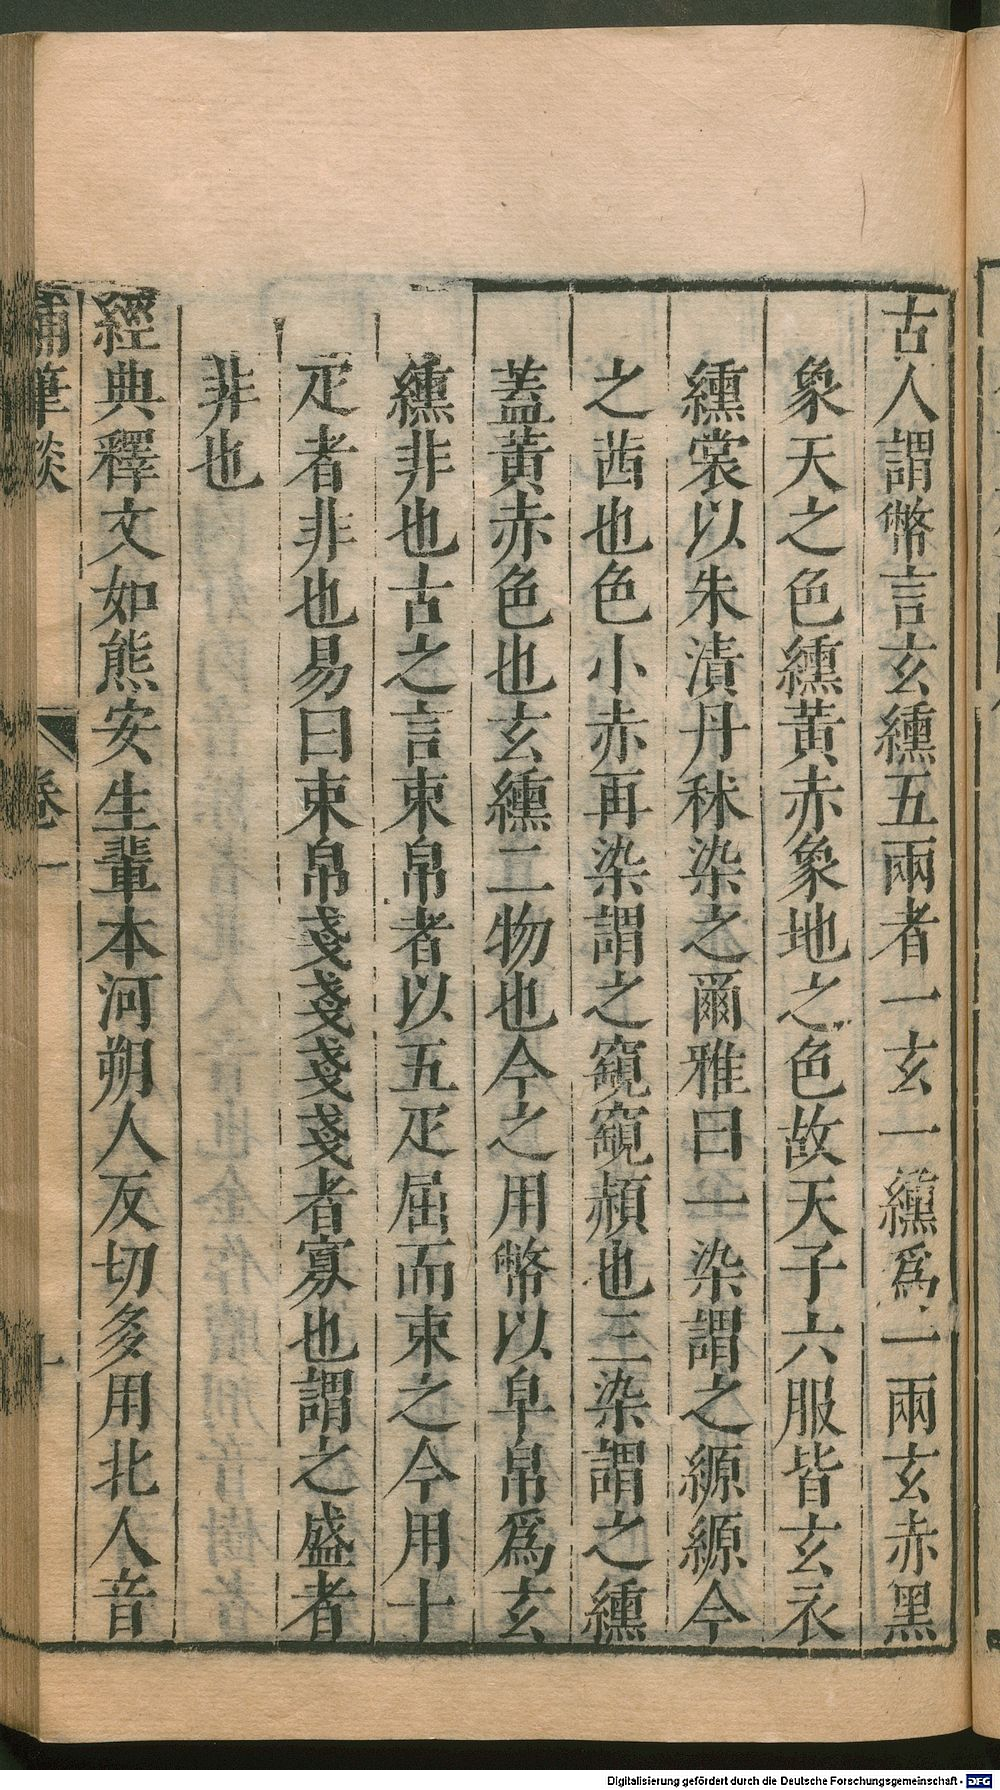 古人謂幣言玄纁五兩者一玄一纁爲一兩玄赤黑
象天之色纁黃赤象地之色故天子六服皆玄衣
纁裳以朱漬丹秫染之爾雅曰一染謂之縓縓今
之茜也色小赤再染謂之窺窺赬也三染謂之纁
蓋黃赤色也玄纁二物也今之用幣以皁帛爲玄
纁非也古之言束帛者以五疋屈而束之今用十
疋者非也易曰束帛戔戔戔戔者寡也謂之盛者
非也
經典釋文如熊安生輩本河朔人反切多用北人音
補筆談 卷一 十
Digitalisierung gefördert durch die Deutsche Forschungsgemeinschaft - DFG